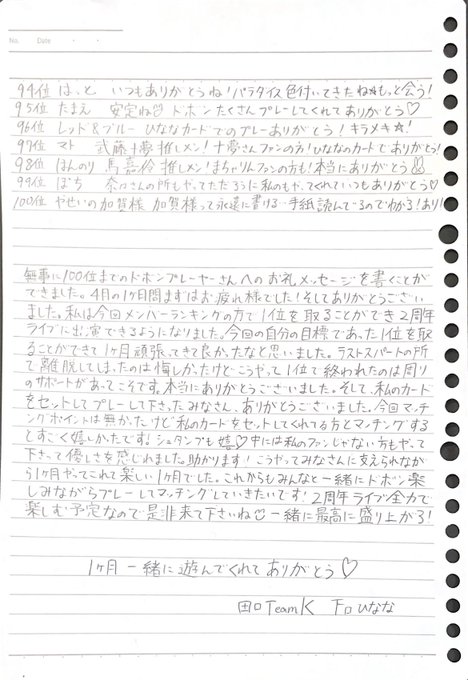 No. Date
94位 はっと いつもありがとうね!パラダイス色付いてきたね☆もっと会う!
95位 たまえ 安定ね♡ドボンたくさんプレーしてくれてありがとう♡
96位 レッド&ブルー ひななカードでのプレーありがとう!キラメキ☆!
97位 マト 武藤十夢推しメン!十夢さんファンの方!ひななのカードでありがとう!
98位 ほんのり 馬嘉伶推しメン!まちゃりんファンの方も!本当にありがとう
99位 ぽち 奈々さんの所もやってただろうに私のもやってくれていつもありがとう♡
100位 やせいの加賀様 加賀様って永遠に書ける…手紙読んでるのでわかる!あり!
無事に100位までのドボンプレーヤーさんへのお礼メッセージを書くことが
できました。4月の1ヶ月間まずはお疲れ様でした!そしてありがとうござい
ました。私は今回メンバーランキングの方で1位を取ることができ2周年
ライブに出演できるようになりました。今回の自分の目標であった1位を取
ることができて1ヶ月頑張ってきて良かったなと思いました。ラストスパートの所
で離脱してしまったのは悔しかったけどこうやって1位で終われたのは周り
のサポートがあってこそです。本当にありがとうございました。そして、私のカード
をセットしてプレーして下さったみなさん、ありがとうございました。今回マッチン
グポイントは無かったけど私のカードをセットしてくれてる方とマッチングする
とすごく嬉しかったです!シュタンプも嬉♡中には私のファンじゃない方もやって
下さって優しさを感じれました。助かります!こうやってみなさんに支えられなが
ら1ヶ月やってこれて楽しい1ヶ月でした。これからもみんなと一緒にドボン楽
しみながらプレーしてマッチングしていきたいです!2周年ライブ全力で
楽しむ予定なので是非来て下さいね♡一緒に最高に盛り上がろ!
1ヶ月一緒に遊んでくれてありがとう♡
Team K 下口ひなな